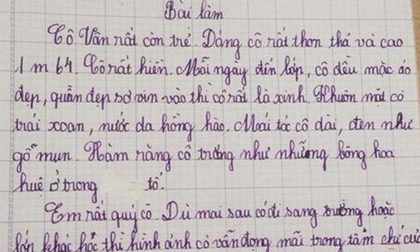 Bài làm
Cô Vân rất còn trẻ. Dáng cô rất thon thả và cao
1 m 64. Cô rất hiền. Mỗi ngày đến lớp, cô đều mặc áo
đẹp, quần đẹp sơ vin vào thì cô rất là xinh. Khuôn mặt cô
trái xoan, nước da hồng hào. Mái tóc cô dài, đen như
gỗ mun. Hàm răng cô trắng như những bông hoa
huệ ở trong tổ.
Em rất quý cô. Dù mai sau có đi sang trường hoặc
lớn khác học thì hình ảnh cô vẫn đọng mãi trong tâm chí của